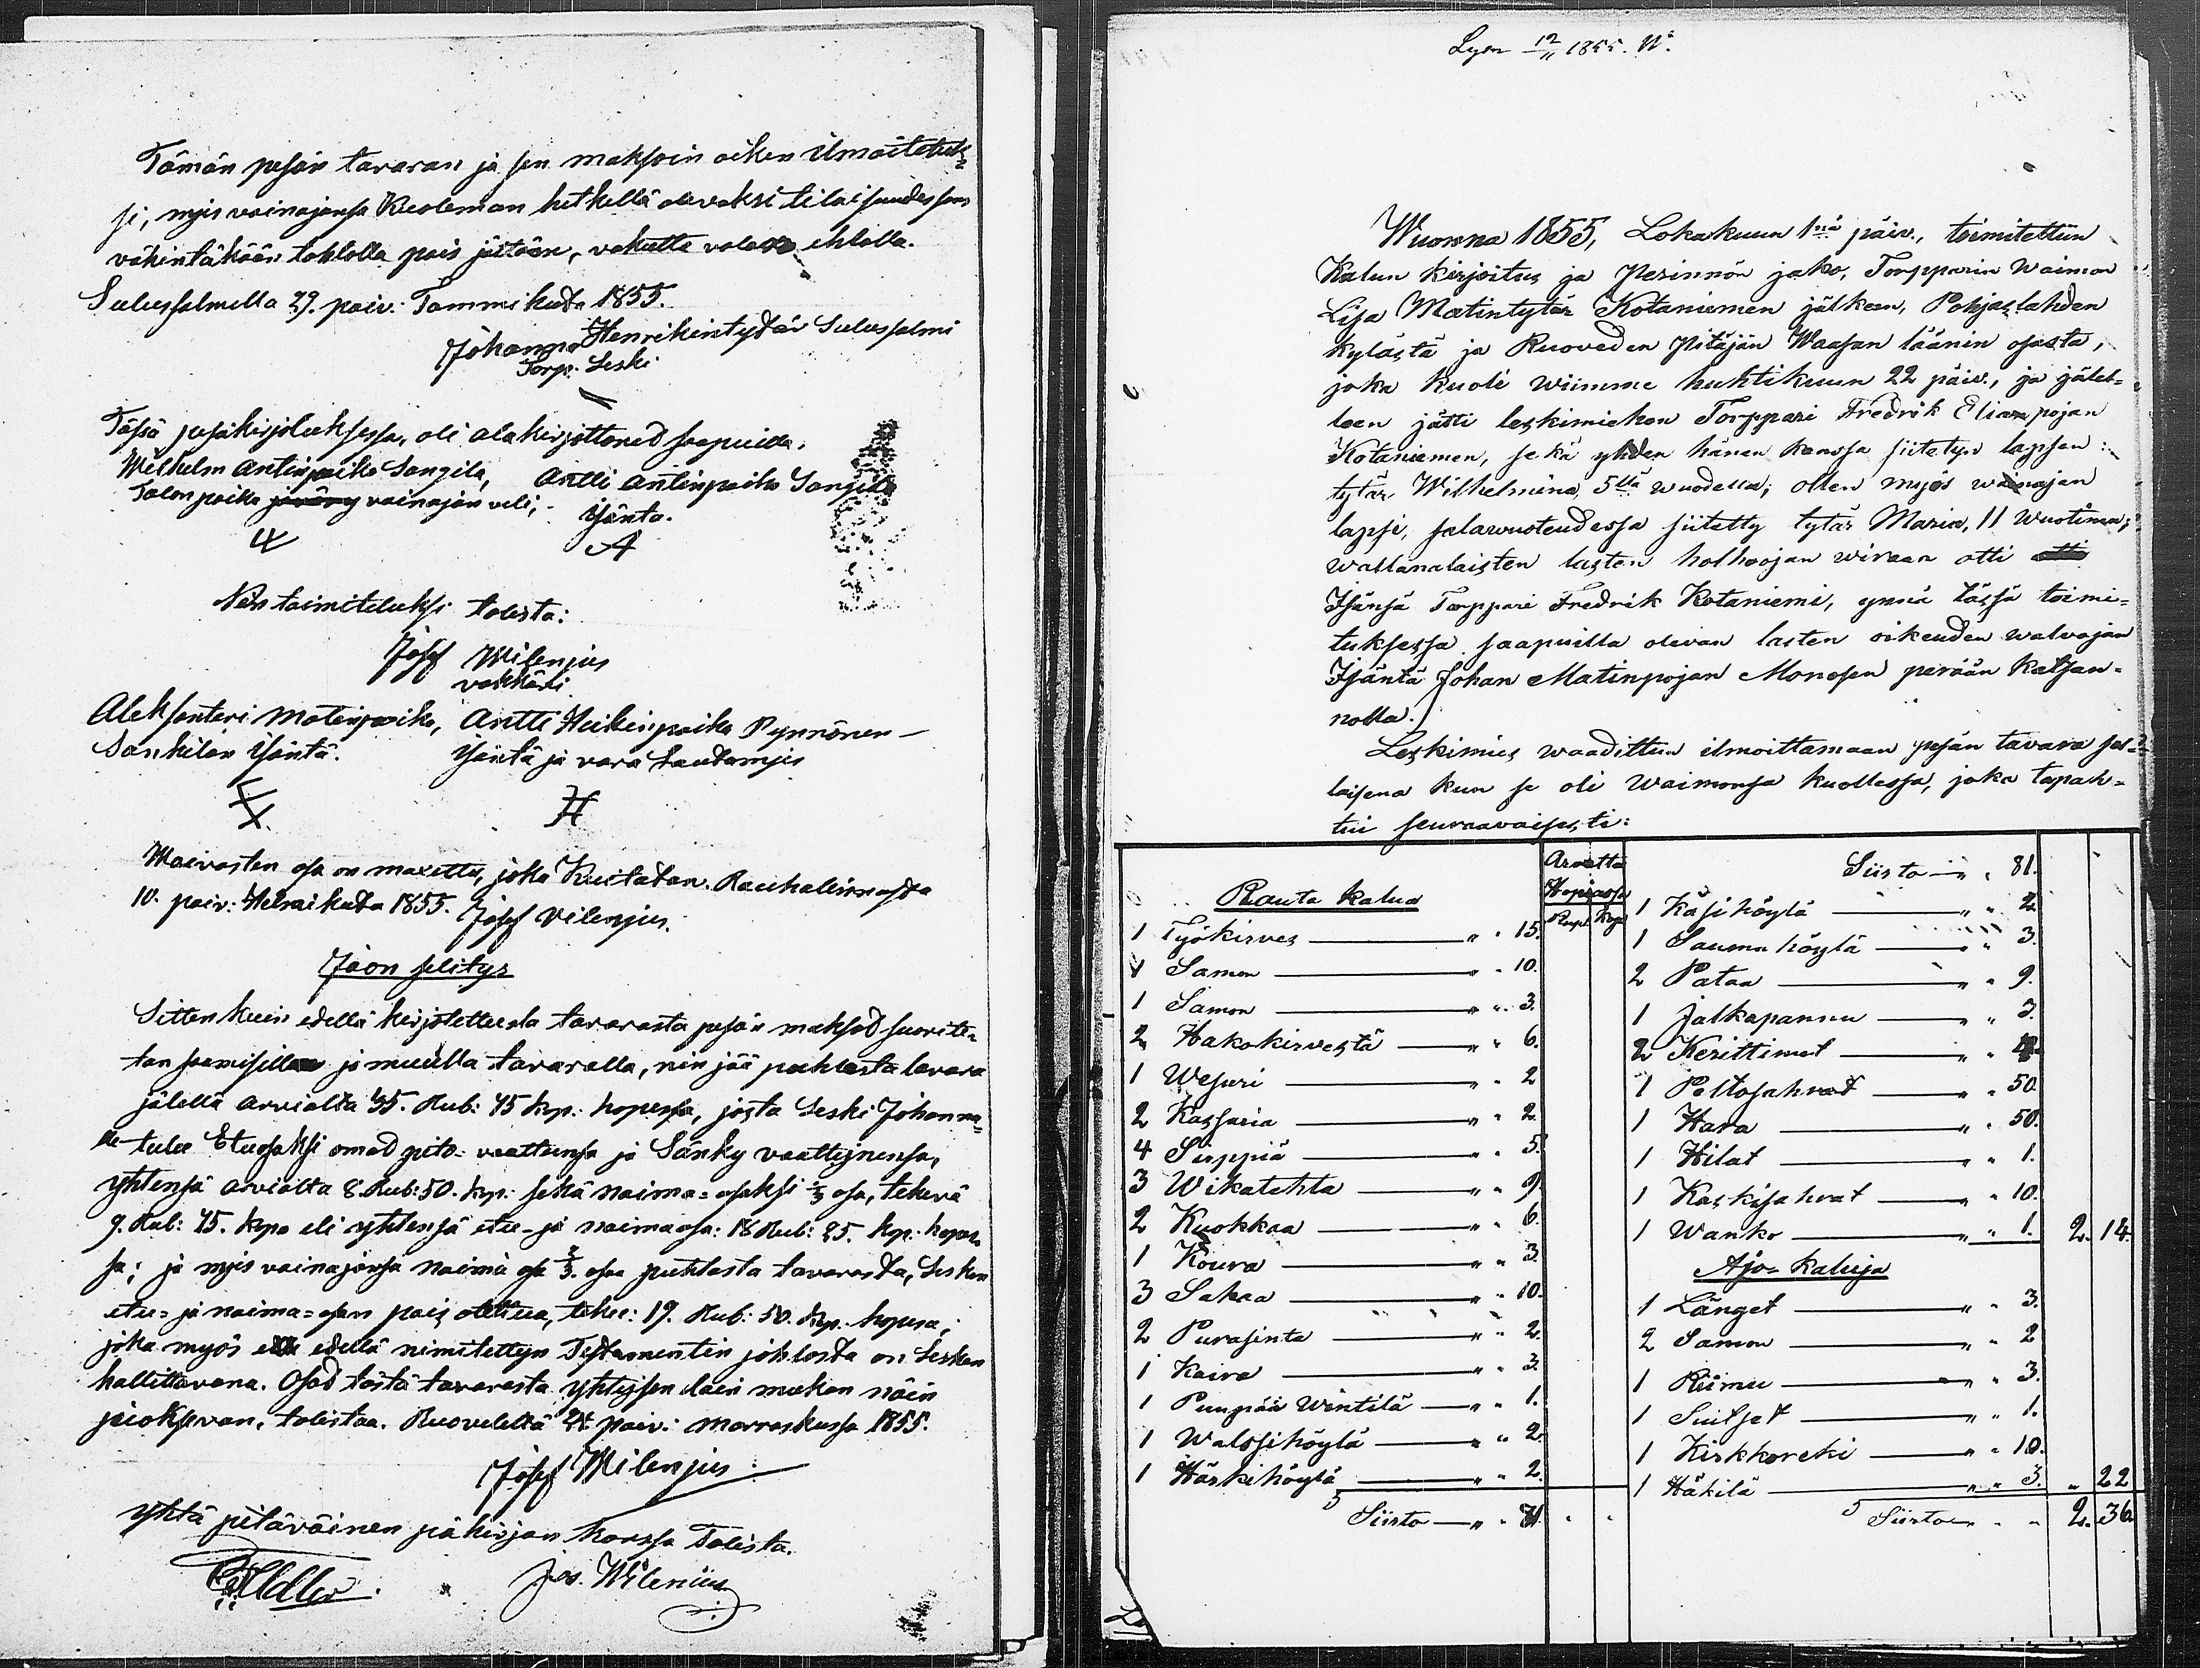 Tämän pesän tavaran ja sen maksoin oiken ilmoitetuk=
si, mjes vainajansa Kuoleman hetkellä olevaksi tilaisuudessans
vähintäkään tahtolla pois jättään, vakutta valan ehtolla.
Sulussalmella 29. paiv: Tammikuda 1855.
Johanna Henrikintydär Sulussalmi
Torp. Leski
Tässä pesäkirjotuksessa, oli alakirjottaned saapuilla.
Wilhelm Antinpoika Sangila, Antti Antinpoika Sangila
Talon poika vainajan veli, Ysänta.
A
Näin toimiteluksi tolista:
Josef Wilenjus
vakkäri
Aleksanteri Matinpoika, Antti Heikinpoika Pynnönen
Sankilan Ysäntä. Ysäntä ja vara Lautamjes
Waivasten osa on maxettu, joka Kuitatan. Rauhalinnasda
10. paiv: Helmikuda 1855. Josef Vilenjus.
Jaon selitys
Sitten kuin edellä kirjotettusta tavarasta pesän maksod suorite=
tan saamisilla ja muulla tavaralla, nin jää puhtasta tavara
jälellä arviolta 35. Rub: 45 kop: hopessa, josta Leski Johanna=
lle tulee Etuosaksi omad pito- vaattensa ja Sänky vaattejnensa,
yhtensä arviolta 8. Rub: 50. kop: sekä naima=osaksi 1/3 osa, tekevä
9. Rub: 75. kopa eli yhtensä etu=ja naimaosa: 18 Rub: 25. kop. hopes=
sa; ja mjes vainajansa naima osa 2/3. osaa puhtasta tavarasda, Lesken
etu=ja naima=osan pois otettua, tekee: 19. Rub: 50. kop. hopesa;
joka myös edellä nimitettyn Testamentin johdosta on Lesken
hallittavana. Osad tästä tavarasta yhtejsen lain mukan näin
juoksevan, tolistaa. Ruovedeltä 24 paiv: marraskussa 1855.
Josef Wilenjus
Yhtä pitäväinen päkirjan kanssa Tolista.
Jos. Wilenius
Lyon 12/11 1855. No.
Wuonna 1855, Lokakuun 1nä päiv., toimitettiin
Kalun kirjoitus ja Perinnön jako, Torpparin Waimon
Lisa Matintytär Kotaniemen jälkeen, Pohjaslahden
kylästä ja Ruoveden Pitäjän Waasan läänin osasta,
joka kuoli wiimme huhtikuun 22 päiv., ja jälel=
leen jätti leskimiehen Torppari Fredrik Eliampojan
Kotaniemen, sekä yhden hänen kanssa siitetyn lapsen:
tytär Wilhelmina, 5llä wuodella; ollen myös wainajan
lapsi, salawuoteudessa siitetty tytär Maria, 11 Wuotinen;
wallanalaisten lasten holhoojan wiraan otti
Isänsä Torppari Fredrik Kotaniemi, ynnä tässä toimi=
tuksessa saapuilla olevan lasten oikeuden walvojan
Isäntä Johan Matinpojan Monosen perään katsan=
nolla.
Leskimies waadittiin ilmoittamaan pesän tavara sel=
laisena kun se oli Waimonsa kuollessa, joka tapah=
tui seuraavaisesti:
Arvattu
Hopeassa
Rupl. Kop.
Rauta kalua
1 Työkirves " " 15.
1 Samon " " 10.
1 Samon " " 3.
2 Hakokirvestä " " 6.
1 Wesuri " " 2
2 Kassaria " " 2.
4 Sirppiä " " 5.
3 Wikatehta " " 9.
2 Kuokkaa " " 6.
1 Koura " " 3.
3 Sahaa " " 10.
2 Purasinta " " 2.
1 Kaira " " 3.
1 Puupää Wintilä " " 1.
1 Walssihöylä " " 2.
1 Häskihöylä " " 2.
Siirto " " 81.
Siirto " " 81.
1 Käsihöylä " " 2
1 Saumu höylä " " 3.
2 Pataa " " 9.
1 Jalkapannu " " 3.
2 Kerittimet " " 4.
1 Peltosahrat " " 50.
1 Hara " " 50.
1 Hilat " " 1.
1 Kaskisahrat " " 10.
1 Wanko " " 1. 2. 14.
Ajo-kaluja
1 Länget " " 3.
2 Samon " " 2
1 Riimu " " 3.
1 Suitset " " 1.
1 Kirkkoreki " " 10.
1 Häkilä " " 3. " 22
Siirto " " 2. 36